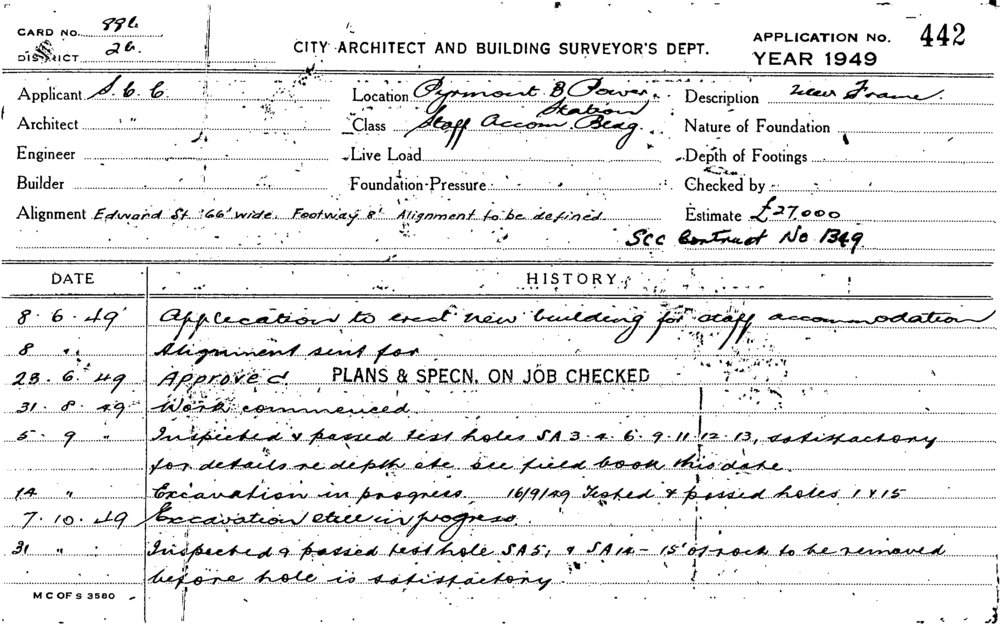 CARD NO. 886
DISTRICT 26
CITY ARCHITECT AND BUILDING SURVEYOR'S DEPT.
APPLICATION NO. 442
YEAR 1949
Applicant S.C.C.
Location Pyrmont B Power Station
Description New Frame.
Architect " "
Class Staff Accom. Bldg.
Nature of Foundation
Engineer
Live Load
Depth of Footings
Builder
Foundation Pressure
Checked by
Alignment Edward St. '66' wide. Footway 8' Alignment to be defined.
Estimate £27,000
SCC Contract No 1349
DATE HISTORY
8.6.49 Application to erect new building for staff accommodation
8 " Alignment sent for
23.6.49 Approved PLANS & SPECN. ON JOB CHECKED
31.8.49 Work commenced
5.9 " Inspected & passed test holes SA 3.4.6.9.11.12.13, satisfactory
for details re depth etc see field book this date.
14 " Excavation in progress 16/9/49 Tested & passed holes 1 & 15
7.10.49 Excavation still in progress
31 " Inspected & passed test hole SA5, & SA14 - 15' of rock to be removed
before hole is satisfactory
M C OF S 3580